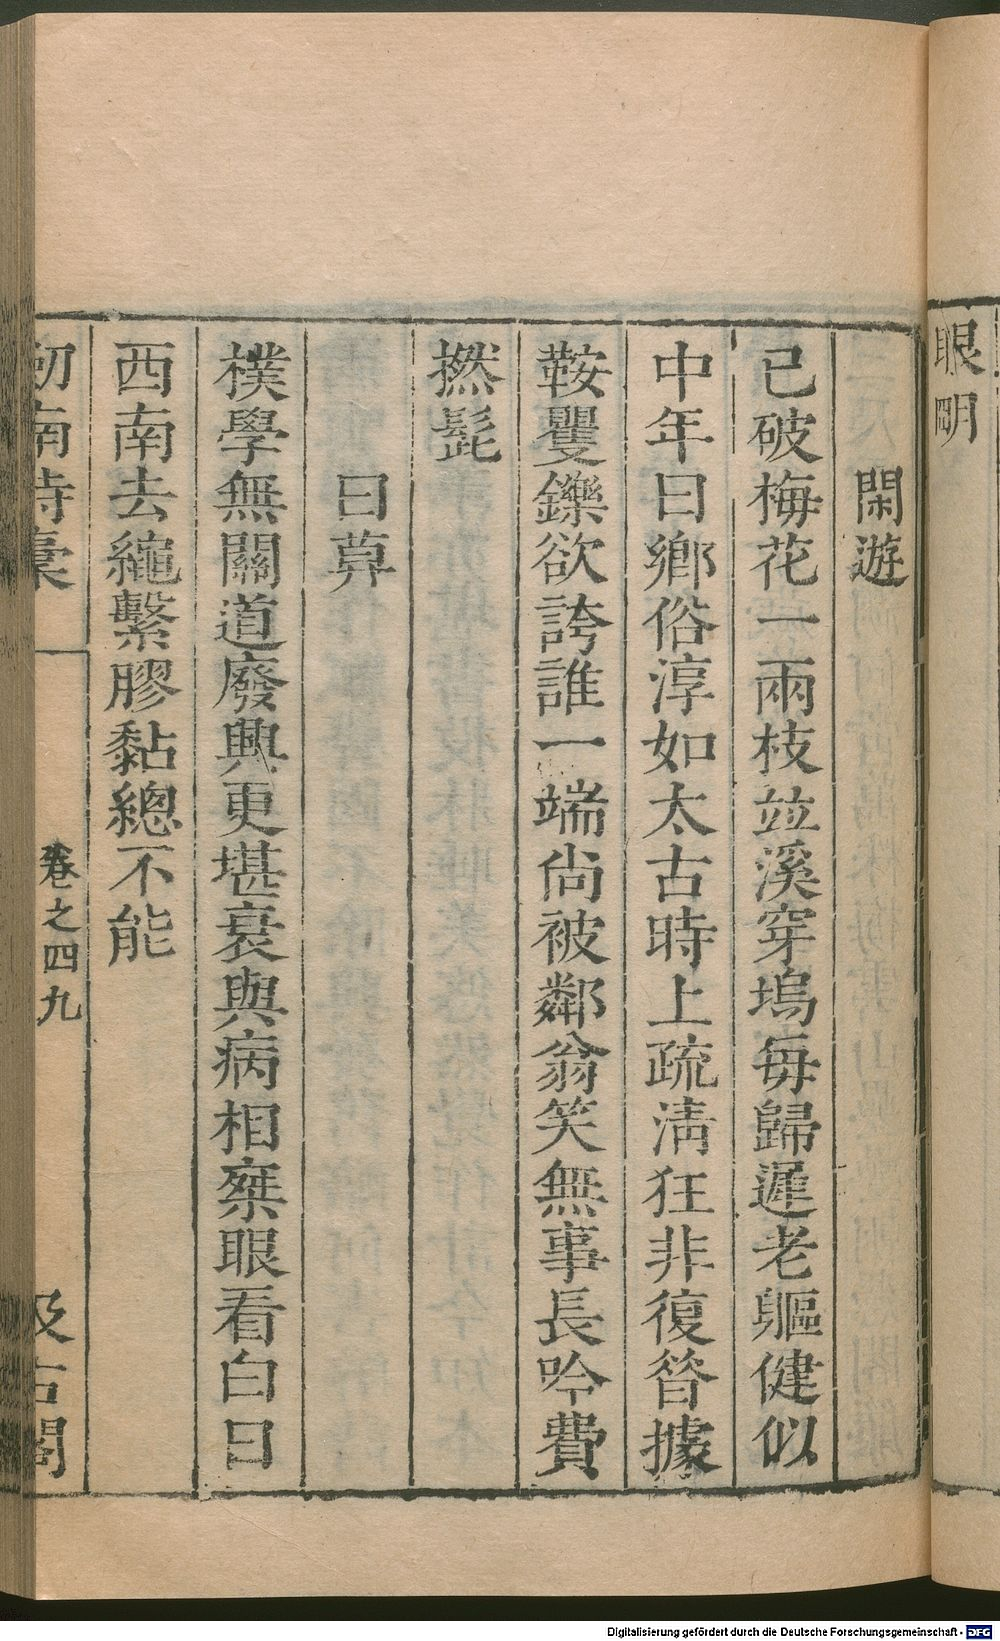 眼明
閑遊
已破梅花一兩枝竝溪穿塢每歸遲老軀健似
中年日鄉俗淳如太古時上疏淸狂非復昝據
鞍矍鑠欲誇誰一端尙被鄰翁笑無事長吟費
撚髭
日莫
樸學無關道廢興更堪衰與病相椉眼看白日
西南去繩繫膠黏總不能
劒南詩稾
卷之四九
汲古閣
Digitalisierung gefördert durch die Deutsche Forschungsgemeinschaft - DFG